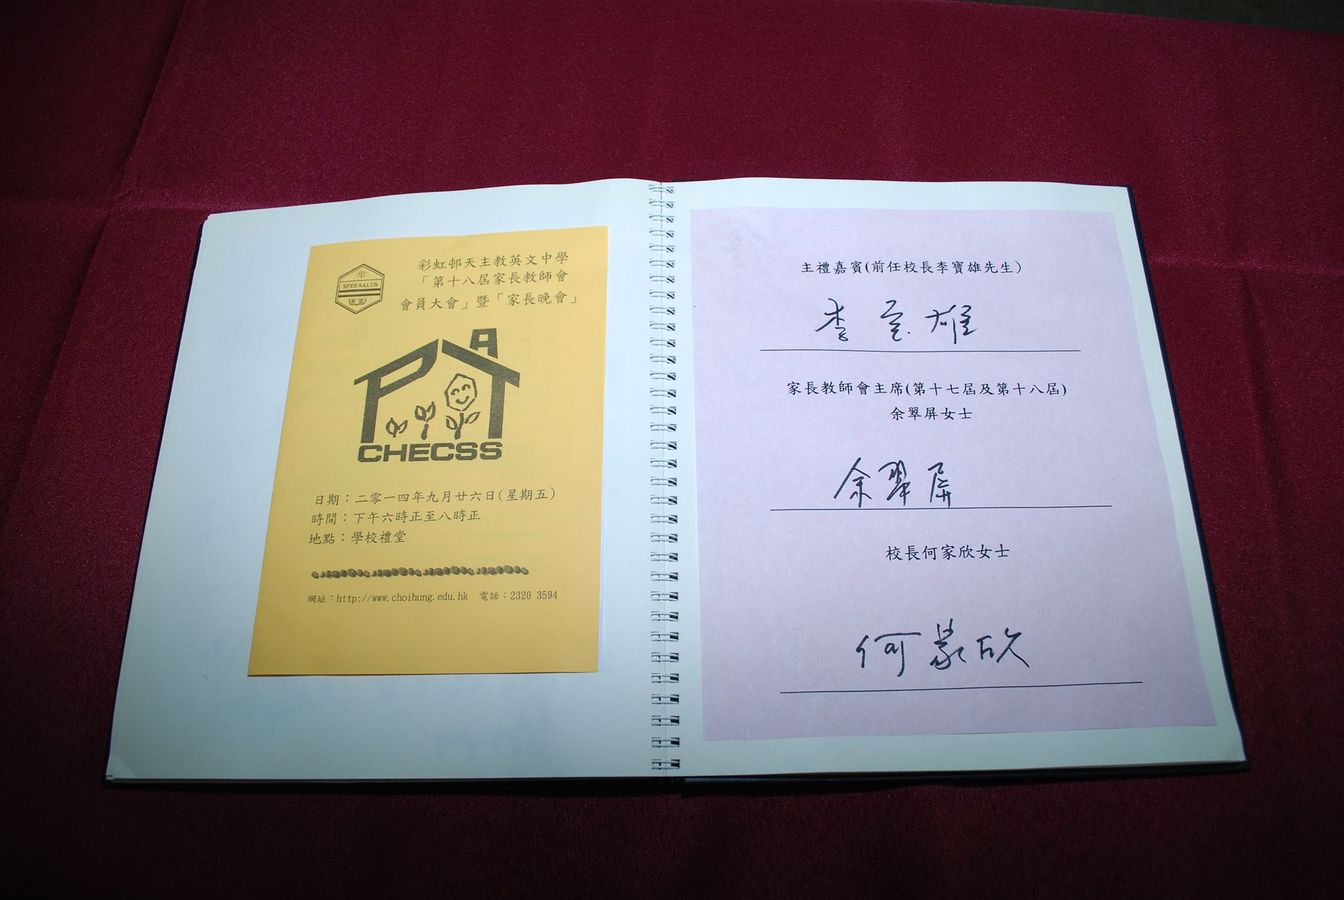 彩虹邨天主教英文中學
「第十八屆家長教師會
會員大會」暨「家長晚會」
SPES SALUS
PAT
CHECSS
日期：二零一四年九月廿六日(星期五)
時間：下午六時正至八時正
地點：學校禮堂
網址：http://www.choihung.edu.hk 電話：2320 3594
主禮嘉賓(前任校長李寶雄先生)
李宝雄
家長教師會主席(第十七屆及第十八屆)
余翠屏女士
余翠屏
校長何家欣女士
何家欣